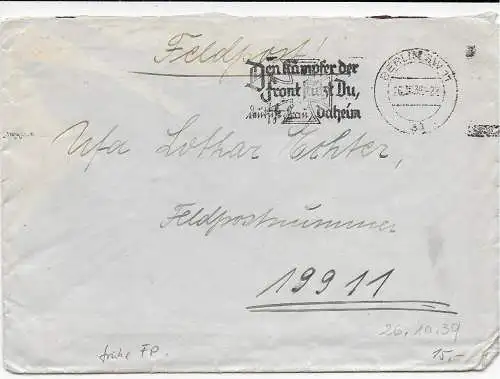 Feldpost!
Den Kämpfer der
Front schützt Du,
deutsche Frau daheim
BERLIN SW 11
26.10.39
Ufa Lothar Echter,
Feldpostnummer
19911
26.10.39
frühe FP.
15,-